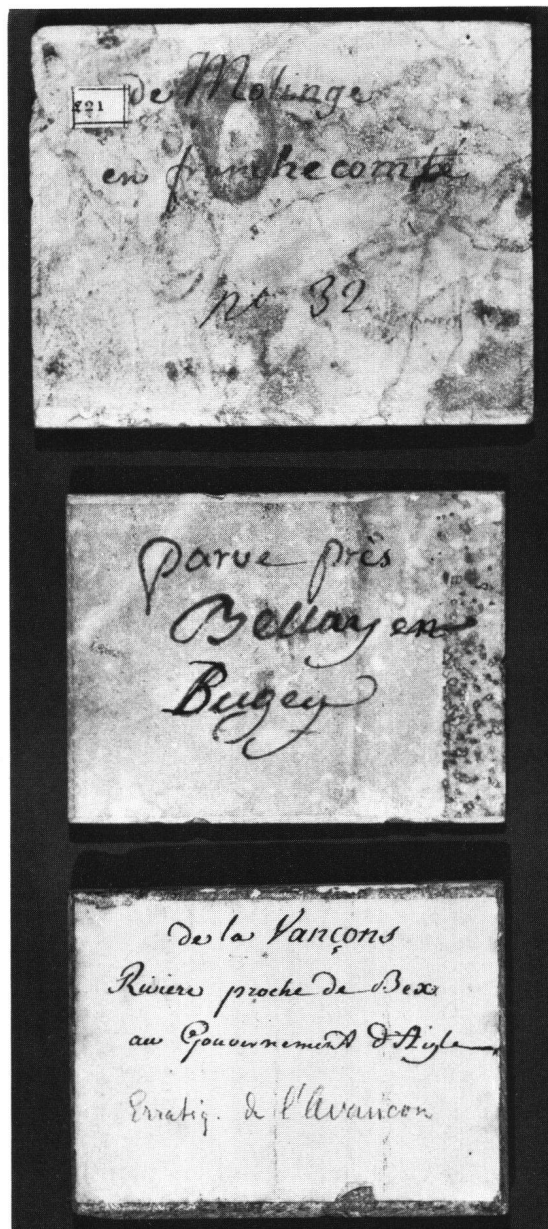 de Molinge
821
en franche comté
no 32
parve près
Bellay en
Bugey
de la Vançons
Riviere proche de Bex
au Gouvernement d'Aigle
Erratiq. de l'Avançon